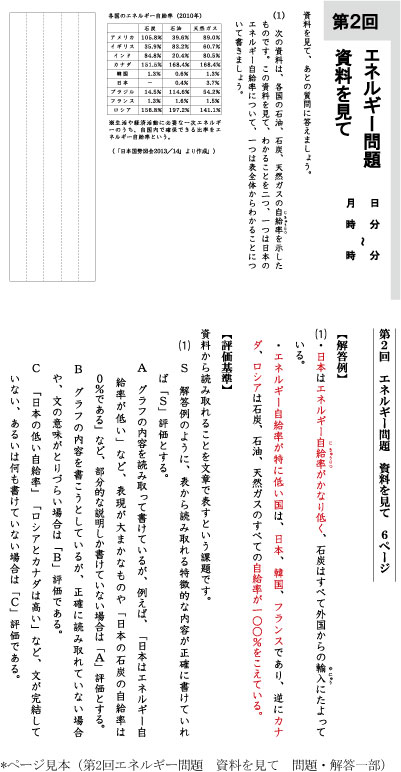 第2回
エネルギー問題
資料を見て
月 日
時 分
~
時 分
資料を見て、あとの質問に答えましょう。
(1) 次の資料は、各国の石油、石炭、天然ガスの自給率を示した
ものです。この資料を見て、わかることを二つ、一つは日本の
エネルギー自給率について、一つは表全体からわかることにつ
いて書きましょう。
各国のエネルギー自給率（2010年）
石炭 石油 天然ガス
アメリカ 105.8% 39.6% 89.0%
イギリス 35.9% 83.2% 60.7%
インド 84.8% 20.4% 80.5%
カナダ 151.5% 168.4% 168.4%
韓国 1.3% 0.6% 1.3%
日本 － 0.4% 3.7%
ブラジル 14.5% 114.6% 54.2%
フランス 1.3% 1.6% 1.5%
ロシア 156.8% 197.2% 141.1%
※生活や経済活動に必要な一次エネルギ
ーのうち、自国内で確保できる比率をエ
ネルギー自給率という。
（「日本国勢図会2013／14」より作成）
第2回 エネルギー問題 資料を見て 6ページ
【解答例】
(1)・日本はエネルギー自給率がかなり低く、石炭はすべて外国からの輸入にたよって
いる。
・エネルギー自給率が特に低い国は、日本、韓国、フランスであり、逆にカナ
ダ、ロシアは石炭、石油、天然ガスのすべての自給率が一〇〇％をこえている。
【評価基準】
資料から読み取れることを文章で表すという課題です。
(1) S 解答例のように、表から読み取れる特徴的な内容が正確に書けていれ
ば「S」評価とする。
A グラフの内容を読み取って書けているが、例えば、「日本はエネルギー自
給率が低い」など、表現が大まかなものや「日本の石炭の自給率は
0％である」など、部分的な説明しか書けていない場合は「A」評価とする。
B グラフの内容を書こうとしているが、正確に読み取れていない場合
や、文の意味がとりづらい場合は「B」評価である。
C 「日本の低い自給率」「ロシアとカナダは高い」など、文が完結して
いない、あるいは何も書けていない場合は「C」評価である。
*ページ見本（第2回エネルギー問題 資料を見て 問題・解答一部）